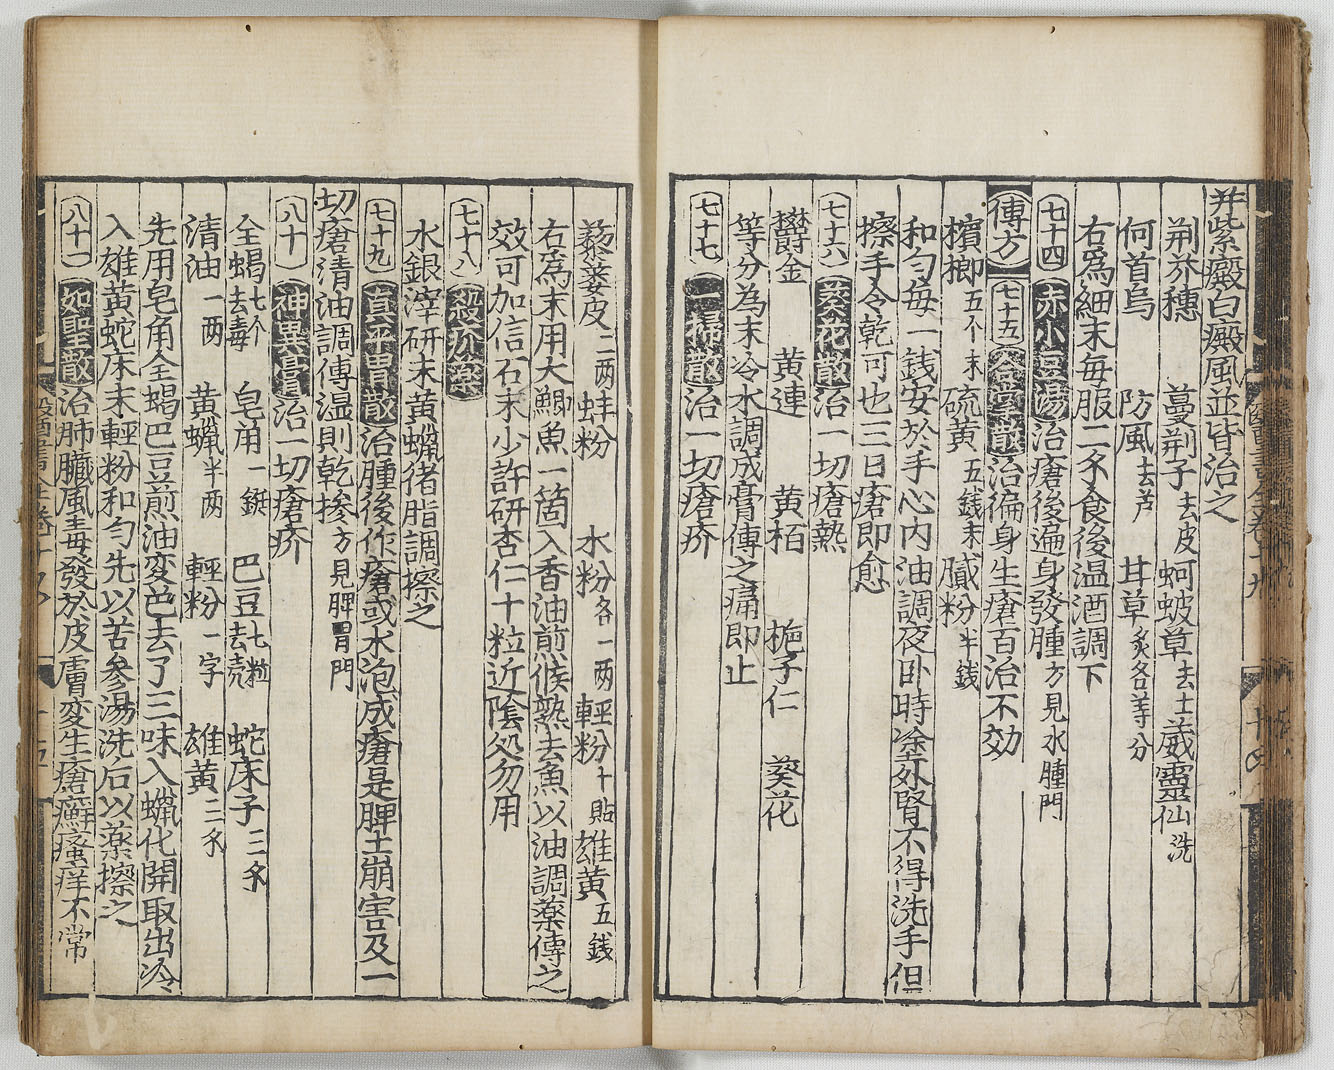 并紫癜白癜風並皆治之
荆芥穗 蔓荆子去皮 蚵蚾草去土 葳靈仙洗
何首烏 防風去芦 甘草炙各等分
右爲細末每服二銭食後温酒調下
七十四 赤小豆湯 治瘡後遍身發腫方見水腫門
傳方 七十五 治徧身生瘡百治不効
檳榔五个末 硫黄五銭末 膩粉半銭
和匀每一銭安於手心内油調夜卧時塗外腎不得洗手但
擦手令乾可也三日瘡即愈
七十六 葵花散 治一切瘡熱
欝金 黄連 黄栢 梔子仁 葵花
等分為末冷水調成膏傅之痛即止
七十七 一掃散 治一切瘡疥
蔞皮二两 蚌粉 水粉各一两 輕粉十貼 雄黄五銭
右爲末用大鯽魚一箇入香油煎候熟去魚以油調薬傅之
效可加信石末少許研杏仁十粒近陰処勿用
七十八 殺疥薬
水銀滓研末黄蠟猪脂調擦之
七十九 真平胃散 治腫後作瘡或水泡成瘡是脾土崩害及一
切瘡清油調傅湿則乾掺方見脾胃門
八十 神異膏 治一切瘡疥
全蝎七个去毒 皂角一鋌 巴豆七粒去売 蛇床子三銭
清油一两 黄蠟半两 輕粉一字 雄黄三銭
先用皂角全蝎巴豆煎油変色去了三味入蠟化開取出冷
入雄黄蛇床末輕粉和匀先以苦參湯洗后以薬擦之
八十一 如聖散 治肺臓風毒發於皮膚変生瘡癬瘙痒不常